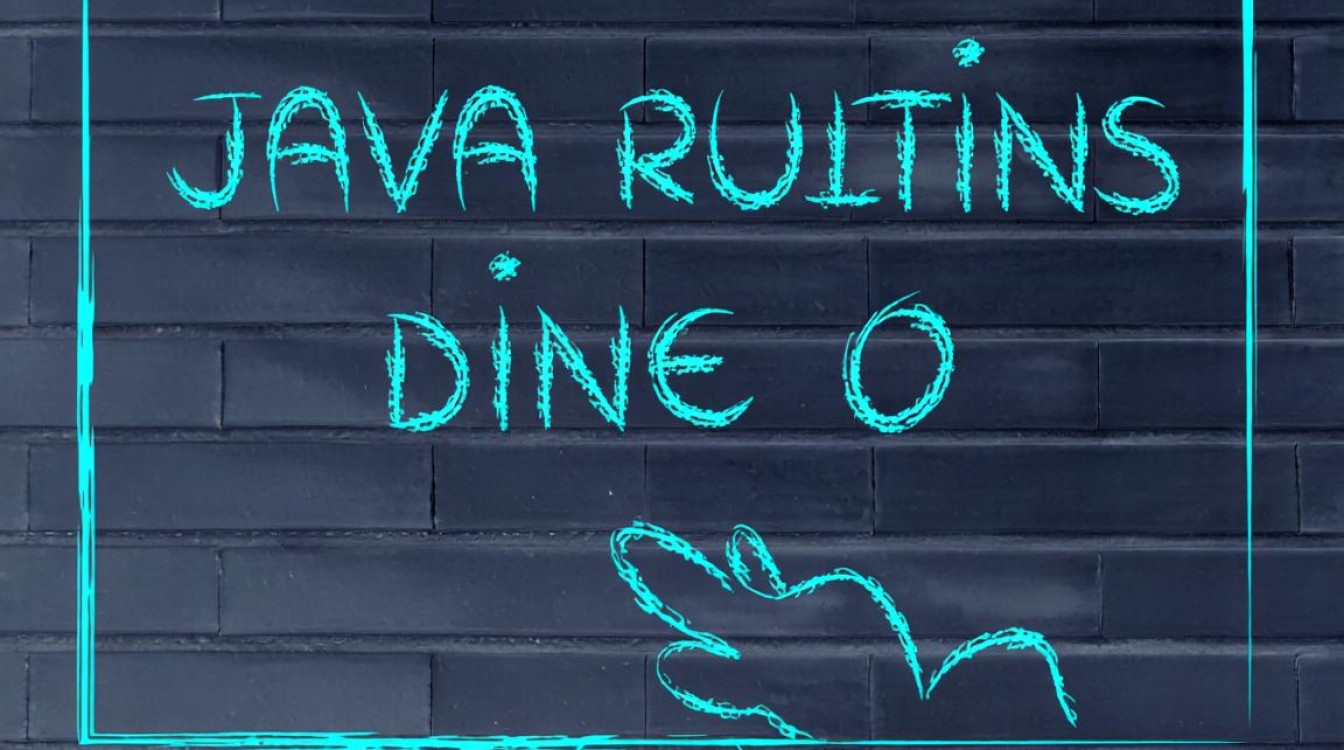 JAVA RUITINS
DINE O